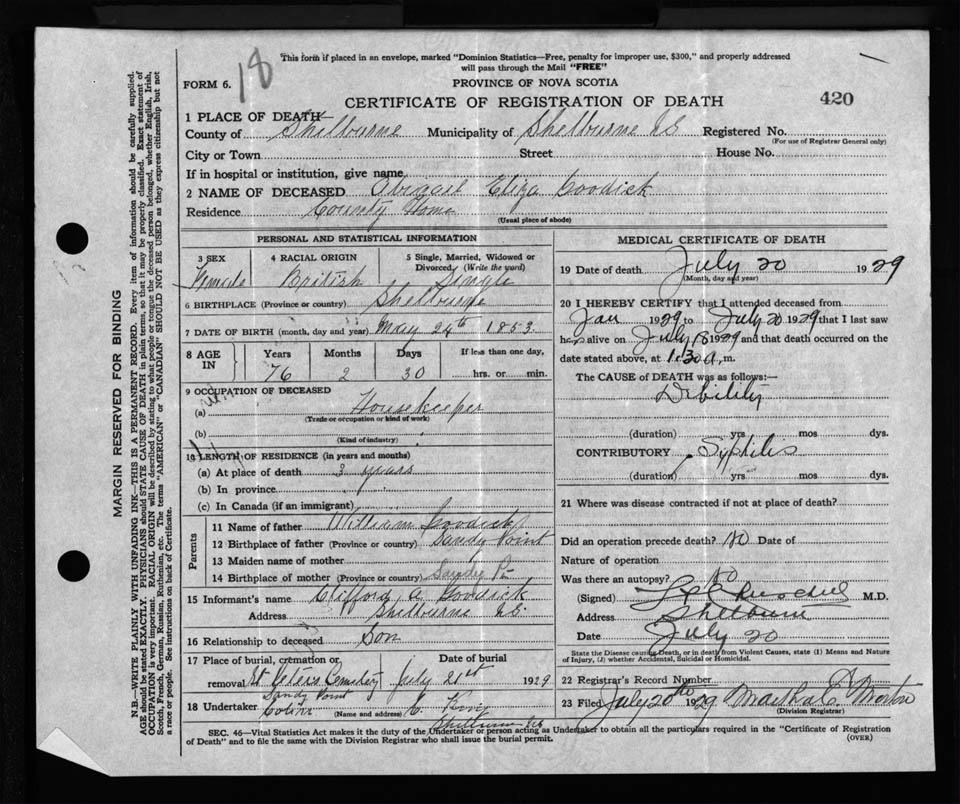 This form if placed in an envelope, marked "Dominion Statistics—Free, penalty for improper use, $300," and properly addressed
will pass through the Mail "FREE"
FORM 6. 18
PROVINCE OF NOVA SCOTIA
CERTIFICATE OF REGISTRATION OF DEATH 420
1 PLACE OF DEATH
County of Shelburne Municipality of Shelburne N.S. Registered No.
(For use of Registrar General only)
City or Town Street House No.
If in hospital or institution, give name
2 NAME OF DECEASED Abigail Eliza Goodick
Residence County Home
(Usual place of abode)
PERSONAL AND STATISTICAL INFORMATION
3 SEX 4 RACIAL ORIGIN 5 Single, Married, Widowed or
Divorced. (Write the word)
Female British Single
6 BIRTHPLACE (Province or country) Shelburne
7 DATE OF BIRTH (month, day and year) May 24th 1853
8 AGE IN Years Months Days If less than one day,
76 2 30 hrs. or min.
9 OCCUPATION OF DECEASED
(a) Housekeeper
(Trade or occupation or kind of work)
(b)
(Kind of industry)
10 LENGTH OF RESIDENCE (in years and months)
(a) At place of death 3 years
(b) In province
(c) In Canada (if an immigrant)
Parents
11 Name of father William Goodick
12 Birthplace of father (Province or country) Sandy Point
13 Maiden name of mother
14 Birthplace of mother (Province or country) Sandy Pt
15 Informant's name Clifford C. Goodick
Address Shelburne N.S.
16 Relationship to deceased Son
17 Place of burial, cremation or Date of burial
removal St Peters Cemetery July 21st 1929
Sandy Point
18 Undertaker (Name and address)
Shelburne N.S.
MEDICAL CERTIFICATE OF DEATH
19 Date of death July 20 1929
(Month, day and year)
20 I HEREBY CERTIFY that I attended deceased from
Jan 1929 to July 20 1929 that I last saw
her alive on July 18 1929 and that death occurred on the
date stated above, at 1.30 a.m.
The CAUSE of DEATH was as follows:—
Debility
(duration) yrs mos dys.
CONTRIBUTORY Syphilis
(duration) yrs mos dys.
21 Where was disease contracted if not at place of death?
Did an operation precede death? No Date of
Nature of operation
Was there an autopsy? No
(Signed) M.D.
Address Shelburne
Date July 20
State the Disease causing Death, or in death from Violent Causes, state (1) Means and Nature
of Injury, (2) whether Accidental, Suicidal or Homicidal.
22 Registrar's Record Number
23 Filed July 20th 1929 Morton
(Division Registrar)
SEC. 46—Vital Statistics Act makes it the duty of the Undertaker or person acting as Undertaker to obtain all the particulars required in the "Certificate of Registration
of Death" and to file the same with the Division Registrar who shall issue the burial permit. (OVER)
MARGIN RESERVED FOR BINDING
N.B.—WRITE PLAINLY WITH UNFADING INK—THIS IS A PERMANENT RECORD. Every item of information should be carefully supplied.
AGE should be stated EXACTLY. PHYSICIANS should STATE CAUSE OF DEATH in plain terms, so that it may be properly classified. Exact statement of
OCCUPATION is very important. RACIAL ORIGIN will be described by stating to what people or tongue the deceased person belonged, whether English, Irish,
Scotch, French, German, Russian, Ruthenian, etc. The terms "AMERICAN" or "CANADIAN" SHOULD NOT BE USED as they express citizenship but not
a race or people. See instructions on back of Certificate.